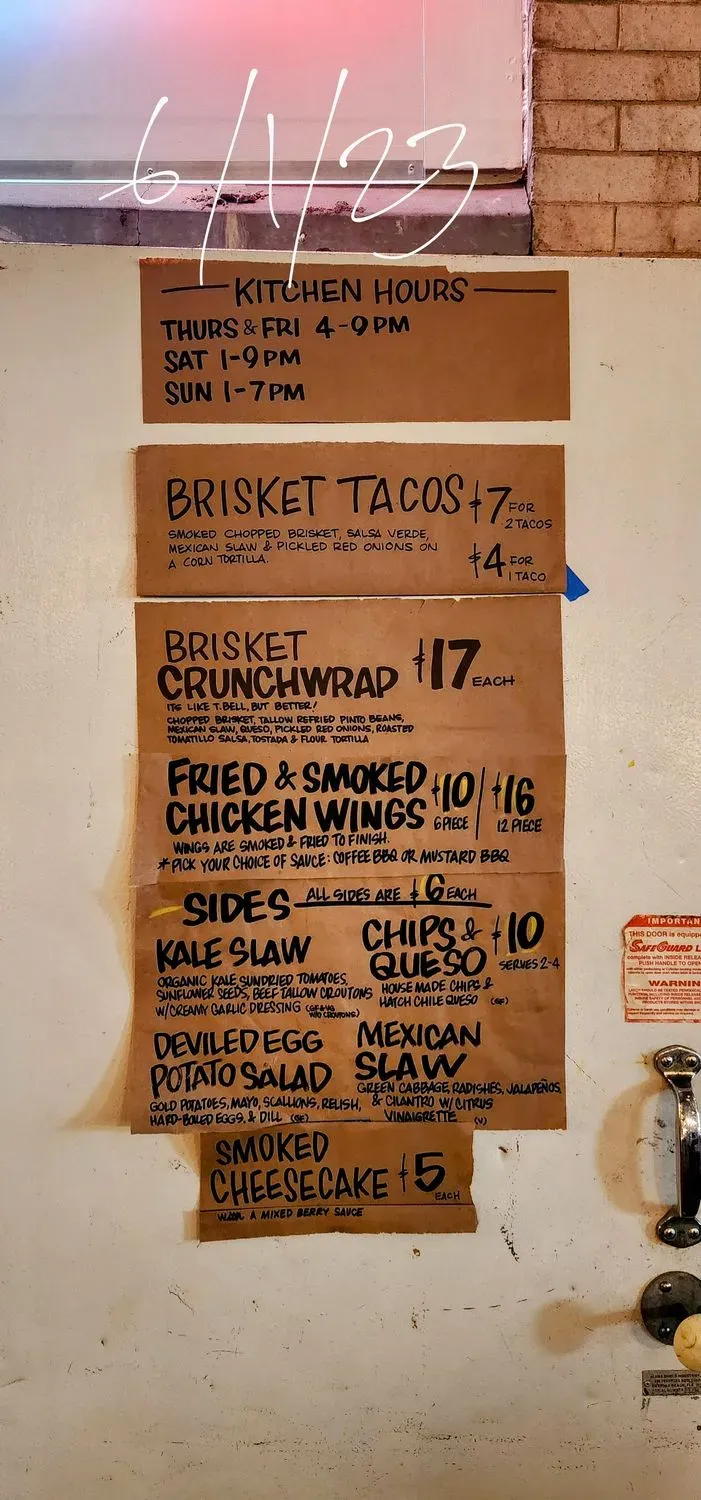 6/1/23
KITCHEN HOURS
THURS & FRI 4-9PM
SAT 1-9PM
SUN 1-7PM
BRISKET TACOS $7 FOR 2 TACOS
SMOKED CHOPPED BRISKET, SALSA VERDE,
MEXICAN SLAW & PICKLED RED ONIONS ON
A CORN TORTILLA.
$4 FOR 1 TACO
BRISKET
CRUNCHWRAP $17 EACH
ITS LIKE T.BELL, BUT BETTER!
CHOPPED BRISKET, TALLOW REFRIED PINTO BEANS,
MEXICAN SLAW, QUESO, PICKLED RED ONIONS, ROASTED
TOMATILLO SALSA, TOSTADA & FLOUR TORTILLA
FRIED & SMOKED
CHICKEN WINGS
$10 6 PIECE / $16 12 PIECE
WINGS ARE SMOKED & FRIED TO FINISH.
*PICK YOUR CHOICE OF SAUCE: COFFEE BBQ OR MUSTARD BBQ
SIDES ALL SIDES ARE $6 EACH
KALE SLAW
ORGANIC KALE, SUNDRIED TOMATOES,
SUNFLOWER SEEDS, BEEF TALLOW CROUTONS
W/CREAMY GARLIC DRESSING
CHIPS & QUESO $10
SERVES 2-4
HOUSE MADE CHIPS &
HATCH CHILE QUESO (GF)
DEVILED EGG
POTATO SALAD
GOLD POTATOES, MAYO, SCALLIONS, RELISH,
HARD-BOILED EGGS, & DILL (GF)
MEXICAN
SLAW
GREEN CABBAGE, RADISHES, JALAPEÑOS,
& CILANTRO W/ CITRUS
VINAIGRETTE (V)
SMOKED
CHEESECAKE $5 EACH
A MIXED BERRY SAUCE
IMPORTAN
THIS DOOR is equipp
SAFEGUARD L
complete with INSIDE RELEA
PUSH HANDLE TO OPE
WARNIN